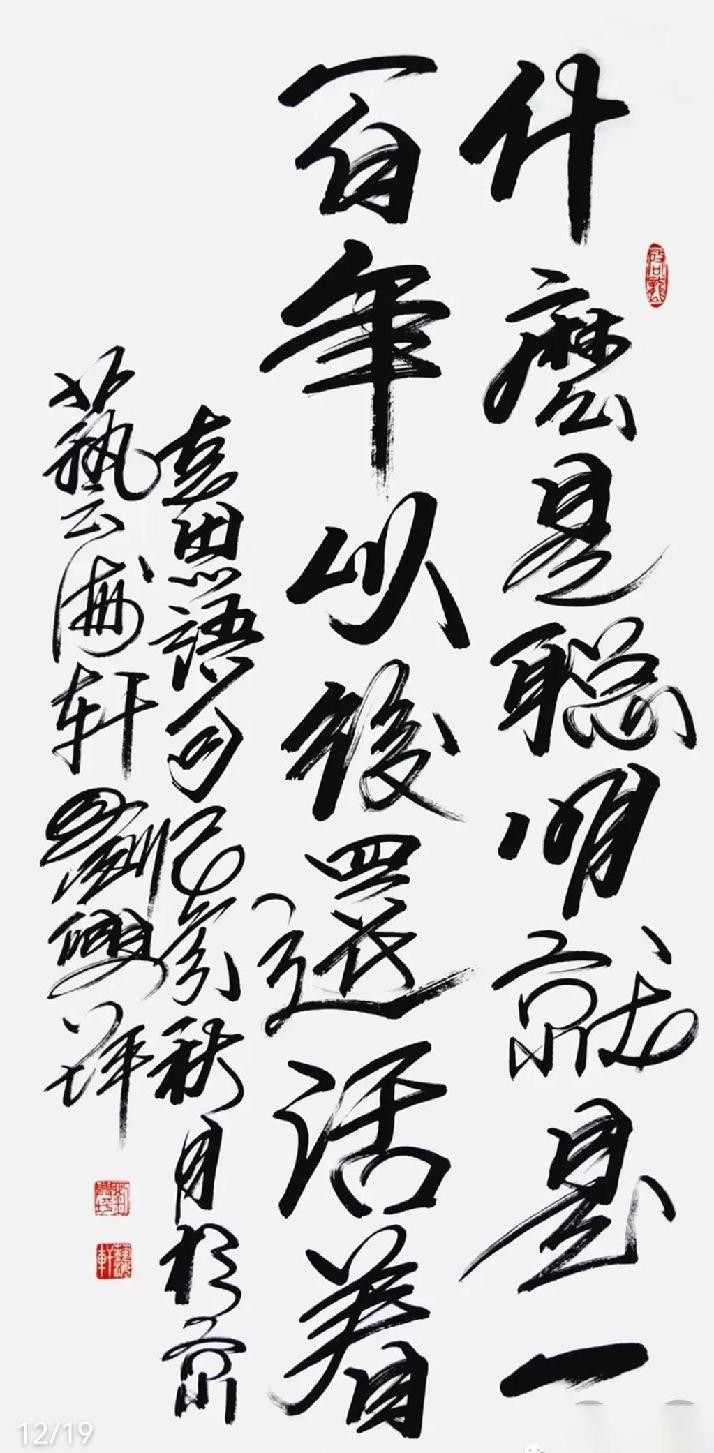 什麽是聰明就是一
百年以後還活着
思語句己亥秋月於京
藝海轩劉坪
12/19